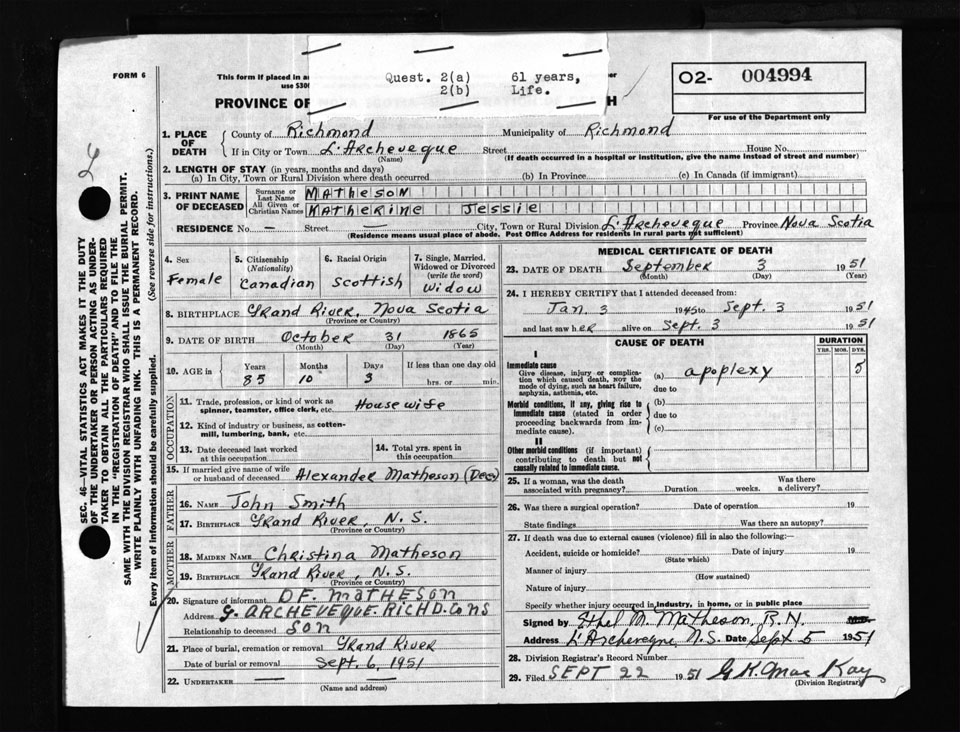 FORM 6
This form if placed in a
use $300
PROVINCE OF
H
Quest. 2(a) 61 years,
2(b) Life.
O2- 004994
For use of the Department only
1. PLACE OF DEATH
County of Richmond Municipality of Richmond
If in City or Town L'Archeveque Street House No.
(Name) (If death occurred in a hospital or institution, give the name instead of street and number)
2. LENGTH OF STAY (in years, months and days)
(a) In City, Town or Rural Division where death occurred (b) In Province (c) In Canada (if immigrant)
3. PRINT NAME OF DECEASED
Surname or Last Name MATHESON
All Given or Christian Names KATHERINE JESSIE
RESIDENCE No. — Street — City, Town or Rural Division L'Archeveque Province Nova Scotia
(Residence means usual place of abode. Post Office Address for residents in rural parts not sufficient)
4. Sex Female
5. Citizenship (Nationality) Canadian
6. Racial Origin Scottish
7. Single, Married, Widowed or Divorced (write the word) Widow
8. BIRTHPLACE Grand River, Nova Scotia
(Province or Country)
9. DATE OF BIRTH October 31 1865
(Month) (Day) (Year)
10. AGE in Years Months Days If less than one day old
85 10 3 hrs. or min.
OCCUPATION
11. Trade, profession, or kind of work as spinner, teamster, office clerk, etc. Housewife
12. Kind of industry or business, as cotten-mill, lumbering, bank, etc.
13. Date deceased last worked at this occupation
14. Total yrs. spent in this occupation
15. If married give name of wife or husband of deceased Alexander Matheson (Dec)
FATHER
16. NAME John Smith
17. BIRTHPLACE Grand River, N.S.
(Province or Country)
MOTHER
18. MAIDEN NAME Christina Matheson
19. BIRTHPLACE Grand River, N.S.
(Province or Country)
20. Signature of informant D.F. MATHESON
Address ARCHEVEQUE. RICHD. Co NS
Relationship to deceased SON
21. Place of burial, cremation or removal Grand River
Date of burial or removal Sept. 6, 1951
22. UNDERTAKER — —
(Name and address)
MEDICAL CERTIFICATE OF DEATH
23. DATE OF DEATH September 3 1951
(Month) (Day) (Year)
24. I HEREBY CERTIFY that I attended deceased from:
Jan. 3 1945 to Sept. 3 1951
and last saw her alive on Sept. 3 1951
CAUSE OF DEATH
DURATION
YRS. MOS. DYS.
I
Immediate cause
Give disease, injury or complication which caused death, NOT the mode of dying, such as heart failure, asphyxia, asthenia, etc.
(a) applexy 5
due to
Morbid conditions, if any, giving rise to immediate cause (stated in order proceeding backwards from immediate cause).
(b)
due to
(c)
II
Other morbid conditions (if important) contributing to death but not causally related to immediate cause.
25. If a woman, was the death associated with pregnancy? Duration weeks. Was there a delivery?
26. Was there a surgical operation? Date of operation 19
State findings Was there an autopsy?
27. If death was due to external causes (violence) fill in also the following:—
Accident, suicide or homicide? Date of injury 19
(State which)
Manner of injury
(How sustained)
Nature of injury
Specify whether injury occurred in industry, in home, or in public place
Signed by Ethel M. Matheson, R.N.
Address L'Archeveque, N.S. Date Sept 5 1951
28. Division Registrar's Record Number
29. Filed SEPT 22 1951 G.K. MacKay
(Division Registrar)
SEC. 46—VITAL STATISTICS ACT MAKES IT THE DUTY
OF THE UNDERTAKER OR PERSON ACTING AS UNDER-
TAKER TO OBTAIN ALL THE PARTICULARS REQUIRED
IN THE "REGISTRATION OF DEATH" AND TO FILE THE
SAME WITH THE DIVISION REGISTRAR WHO SHALL ISSUE THE BURIAL PERMIT.
WRITE PLAINLY WITH UNFADING INK. THIS IS A PERMANENT RECORD.
Every item of Information should be carefully supplied. (See reverse side for instructions.)